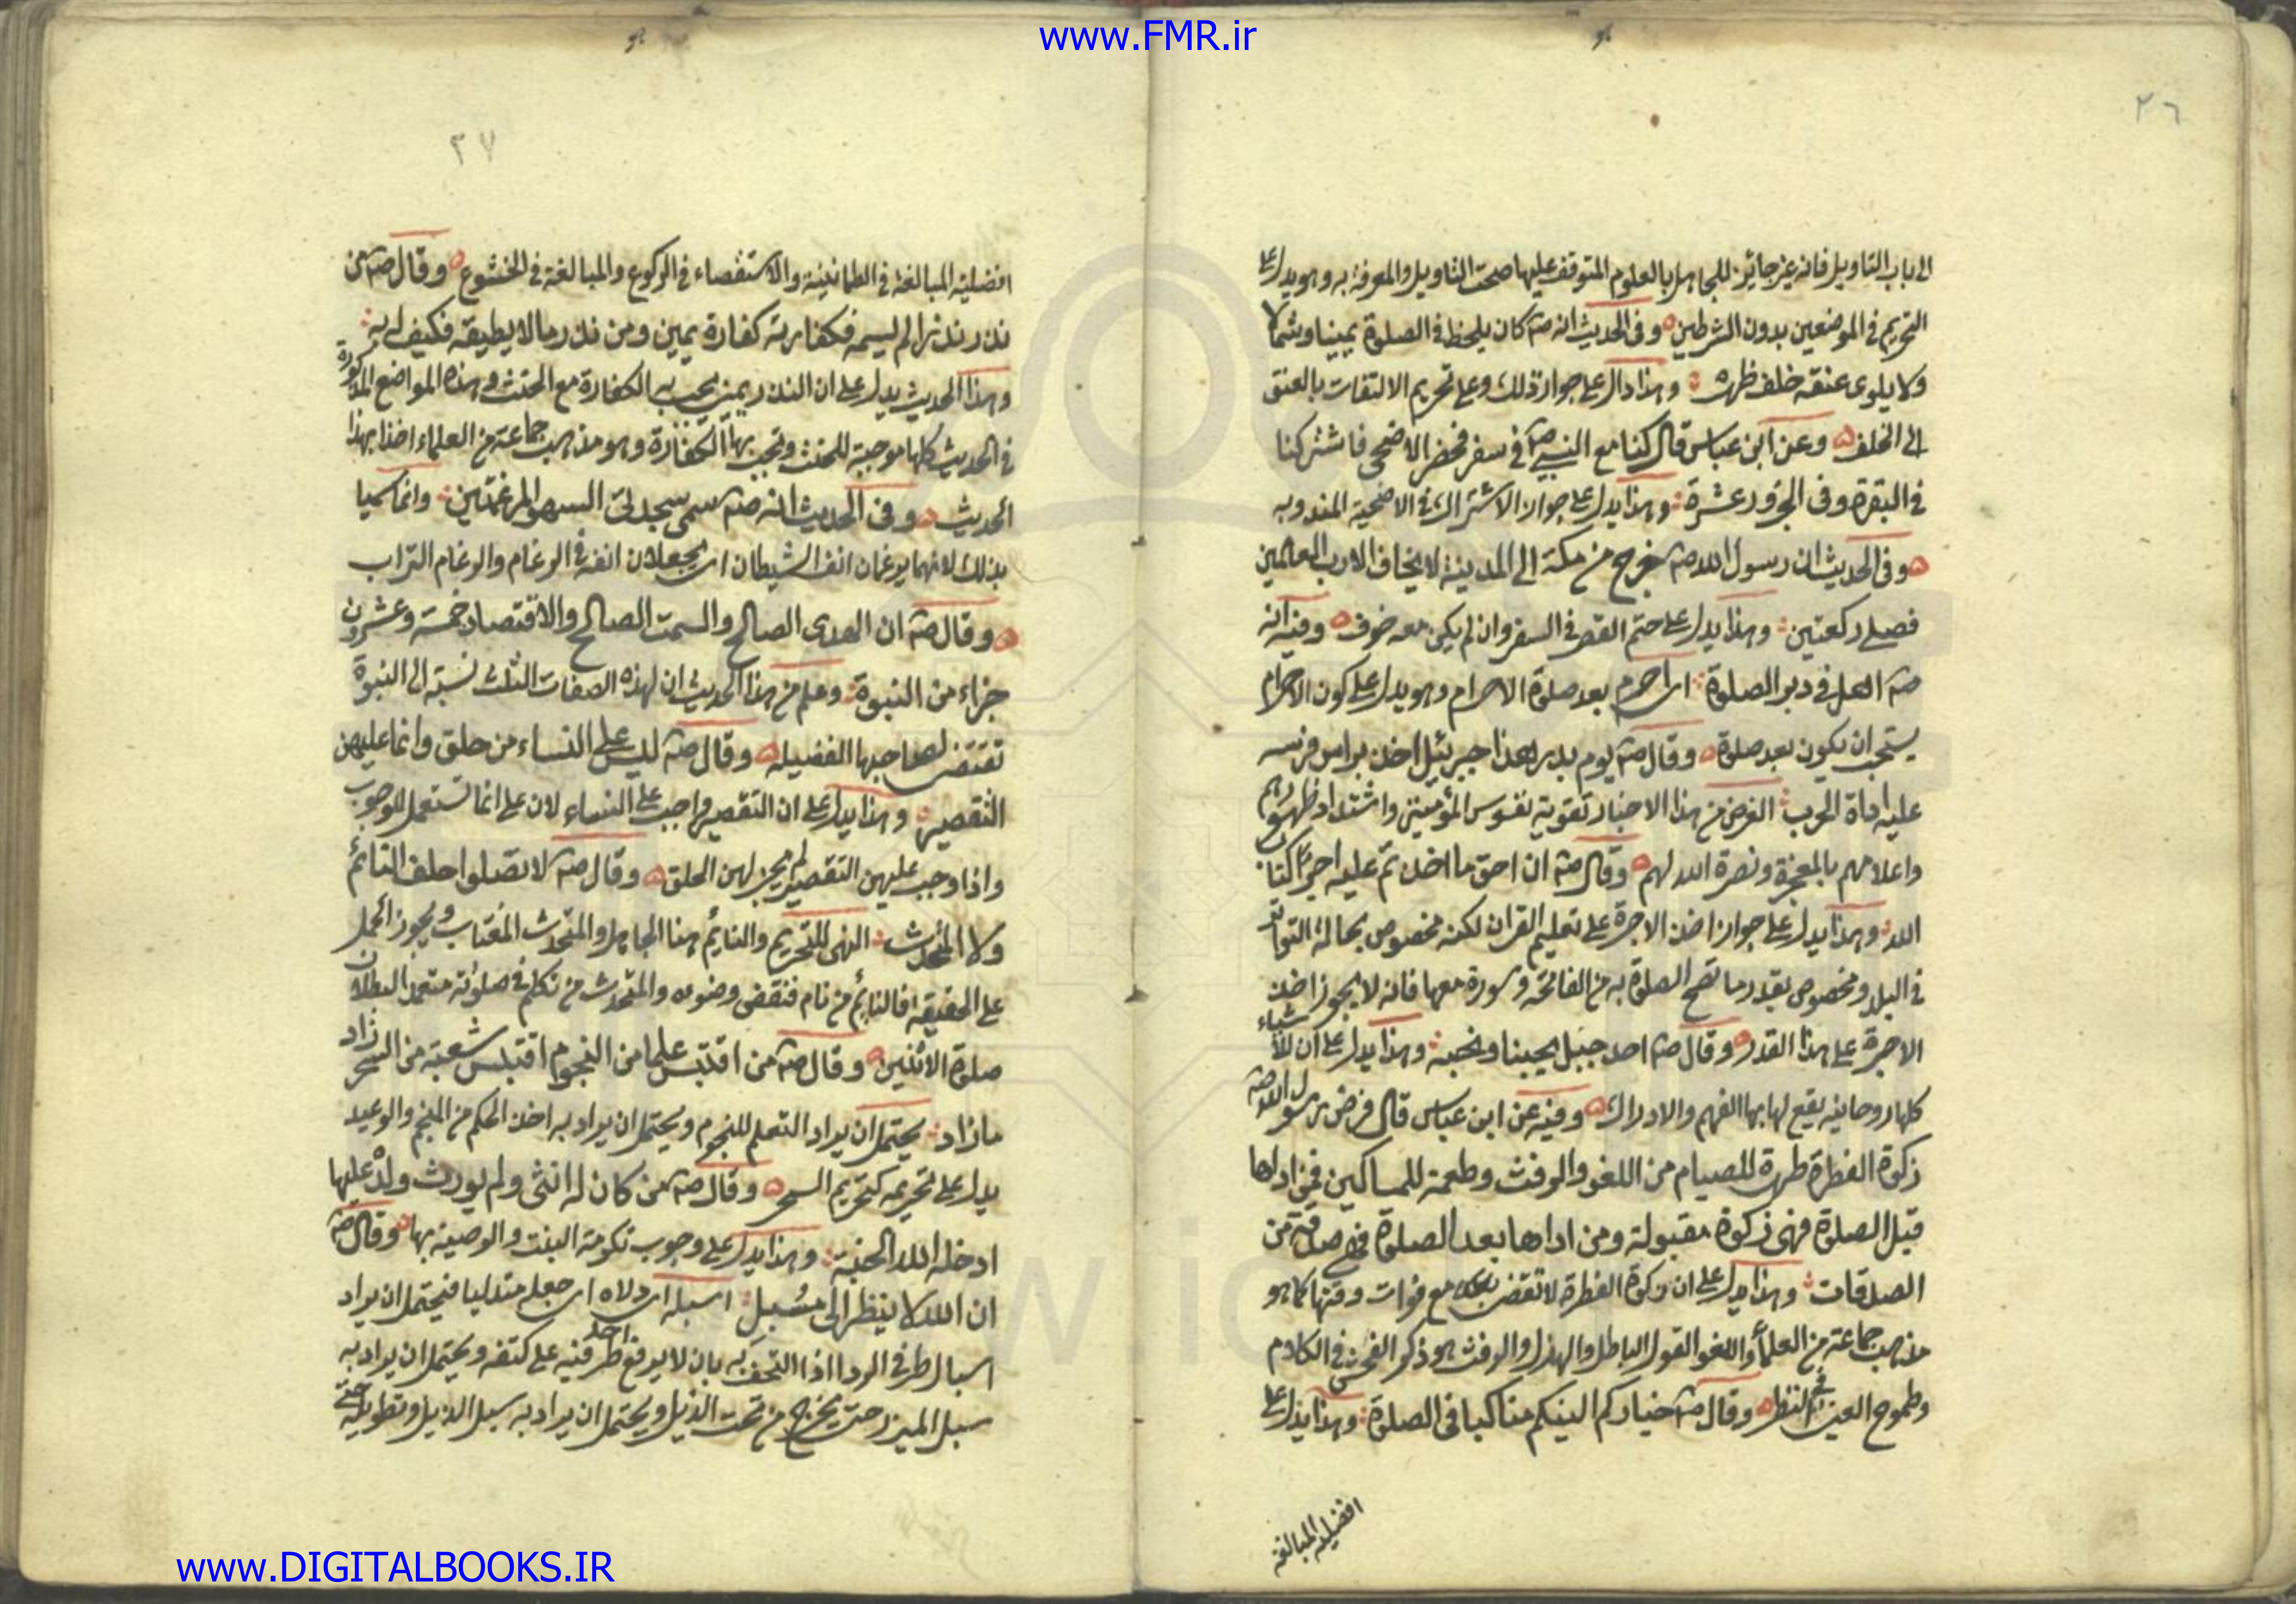 www.FMR.ir
٢٦
الى باب التاويل فانه غير جائز للجاهل بالعلوم المتوقف عليها صحت التاويل والمعرفة به وهو يدل على
التحريم في الموضعين بدون الشرطين وفى الحديث انه صم كان يلحظ في الصلوة يمينا وشمالا
ولا يلوى عنقه خلف ظهره وهذا دال على جواز ذلك وعلى تحريم الالتفات بالعنق
الى الخلف وعن ابن عباس قال كنا مع النبي صم في سفر فحضر الاضحى فاشتركنا
في البقرة وفى الجزور عشرة وهذا يدل على جواز الاشتراك في الاضحية المندوبه
وفى الحديث ان رسول الله صم خرج من مكة الى المدينة لا يخاف الا رب العالمين
فصلى ركعتين وهذا يدل على حتم القصر في السفر وان لم يكن معه خوف وفيه انه
صم اهل في دبر الصلوة اى احرم بعد صلوة الاحرام وهو يدل على كون الاحرام
يستحب ان يكون بعد صلوة وقال صم يوم بدر هذا جبرئيل اخذ براس فرسه
عليه اداة الحرب الغرض من هذا الاخبار تقوية نفوس المؤمنين واشتداد ظهورهم
واعلامهم بالمعجزة ونصرة الله لهم وقال صم ان احق ما اخذتم عليه اجرا كتاب
الله وهذا يدل على جواز اخذ الاجرة على تعليم القران لكنه مخصوص بحالة
في البلد ومخصوص بقدر ما تصح الصلوة به من الفاتحة وسورة معها فانه لا يجوز اخذ
الاجرة على هذا القدر وقال صم احد جبل يحبنا ونحبه وهذا يدل على ان للاشياء
كلها روحانيه يقع لها بها الفهم والادراك وفيه عن ابن عباس قال فرض رسول الله صم
زكوة الفطرة طهرة للصيام من اللغو والرفث وطعمة للمساكين فمن اداها
قبل الصلوة فهى زكوة مقبولة ومن اداها بعد الصلوة فهى صدقة من
الصدقات وهذا يدل على ان زكوة الفطرة لا تقضى بعد مع فوات وقتها كما هو
مذهب جماعة من العلماء واللغو القول الباطل والهذر والرفث هو ذكر الفحش في الكلام
وطموح العين في النظر وقال صم خياركم الينكم مناكبا فى الصلوة وهذا يدل على
افضلية المبالغة
٢٧
افضلية المبالغة في الطمانينة والاستقصاء في الركوع والمبالغة في الخشوع وقال صم من
نذر نذرا لم يسمه فكفارته كفارة يمين ومن نذر ما لا يطيقه فكيف له به
وهذا الحديث يدل على ان النذر يمين يجب به الكفارة مع الحنث وهذه المواضع المذكورة
في الحديث كلها موجبة للحنث وتجب بها الكفارة وهو مذهب جماعة من العلماء اخذا بهذا
الحديث وفى الحديث انه صم سمى سجدتى السهو المرغمتين وانما سميا
بذلك لانهما يرغمان انف الشيطان اى يجعلان انفه في الرغام والرغام التراب
وقال صم ان الهدى الصالح والسمت الصالح والاقتصاد خمسة وعشرون
جزاء من النبوة وعلم من هذا الحديث ان لهذه الصفات الثلث نسبته الى النبوة
تقتضى لصاحبها الفضيلة وقال صم ليس على النساء من حلق وانما عليهن
التقصير وهذا يدل على ان التقصير واجب على النساء لان على انما تستعمل للوجوب
واذا وجب عليهن التقصير لم يجز لهن الحلق وقال صم لا تصلوا خلف النائم
ولا المتحدث النهى للتحريم والنايم هنا الجاهل والمتحدث المغتاب ويجوز الحمل
على الحقيقة فالنائم من نام فنقض وضوءه والمتحدث من تكلم في صلوته متعمدا لبطلان
صلوة الاثنين وقال صم من اقتبس علما من النجوم اقتبس شعبة من السحر زاد
ما زاد يحتمل ان يراد التعلم للنجوم ويحتمل ان يراد به اخذ الحكم من المنجم والوعيد
يدل على تحريمه كتحريم السحر وقال صم من كان له انثى ولم يورث ولده عليها
ادخله الله الجنة وهذا يدل على وجوب تكرمة البنت والوصية بها وقال صم
ان الله لا ينظر الى مسبل اسبله اى دلاه اى جعله متدليا فيحتمل ان يراد
اسبال طرفي الردا اذا التحف به بان لا يرفع احد طرفيه على كتفه ويحتمل ان يراد به
سبل الميزر حتى يخرج من تحت الذيل ويحتمل ان يراد به سبل الذيل وتطويله حتى
www.DIGITALBOOKS.IR